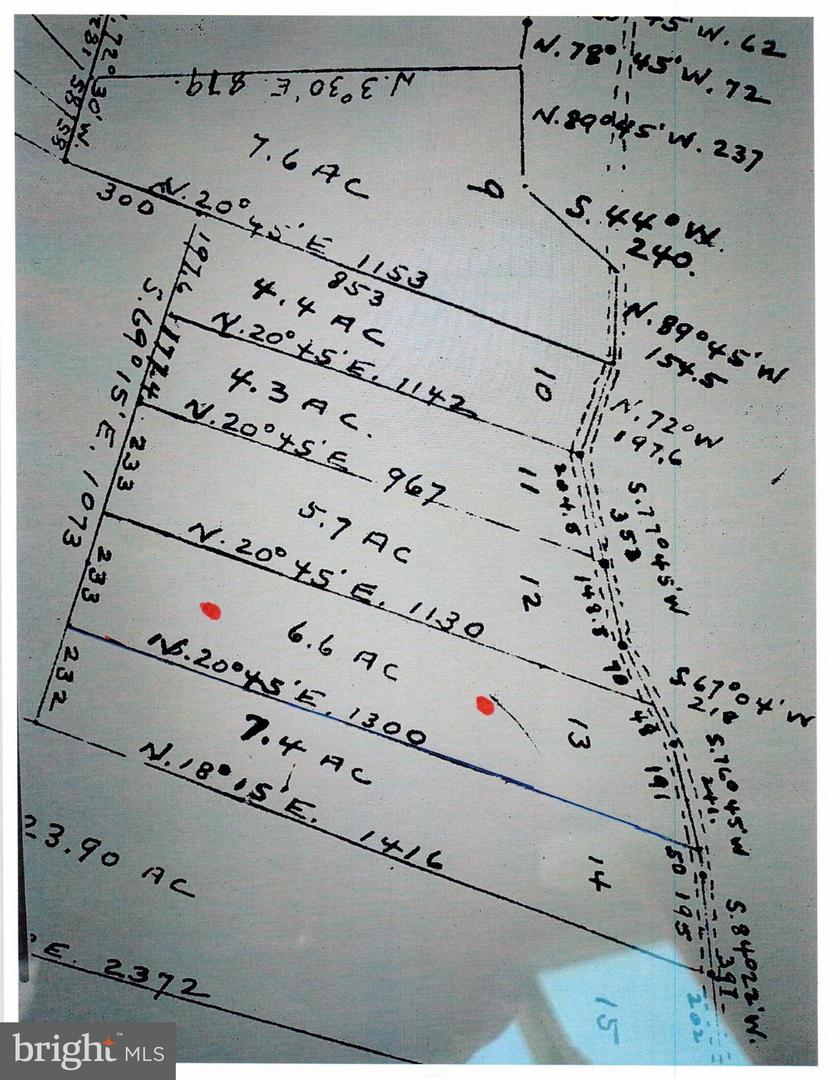 45'W. 62
N. 78° 45'W. 72
N. 72° 30'W.
281 58
58
N. 3° 30' E 879.
N. 89° 45' W. 237
7.6 AC
9
300
N. 20° 45' E 1153
853
S. 44° W.
240.
197.6
4.4 AC
N. 89° 45' W
154.5
N. 20° 45' E. 1142
10
177.4
4.3 AC.
N. 72° W
197.6
N. 20° 45' E 967
11
204.5
S. 69° 15' E. 1073
233
5.7 AC
S. 77° 45' W
353
N. 20° 45' E. 1130
12
148.5
233
6.6 AC
90
S. 67° 04' W
218
48
N. 20° 45' E. 1300
13
232
7.4 AC
191
S. 76° 45' W
241.
N. 18° 15' E. 1416
14
50
195
S. 84° 22' W.
391
23.90 AC
'E. 2372
15
202
bright™ MLS